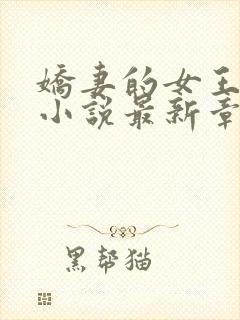 嬌妻的女王
小說最新章
黑帮猫